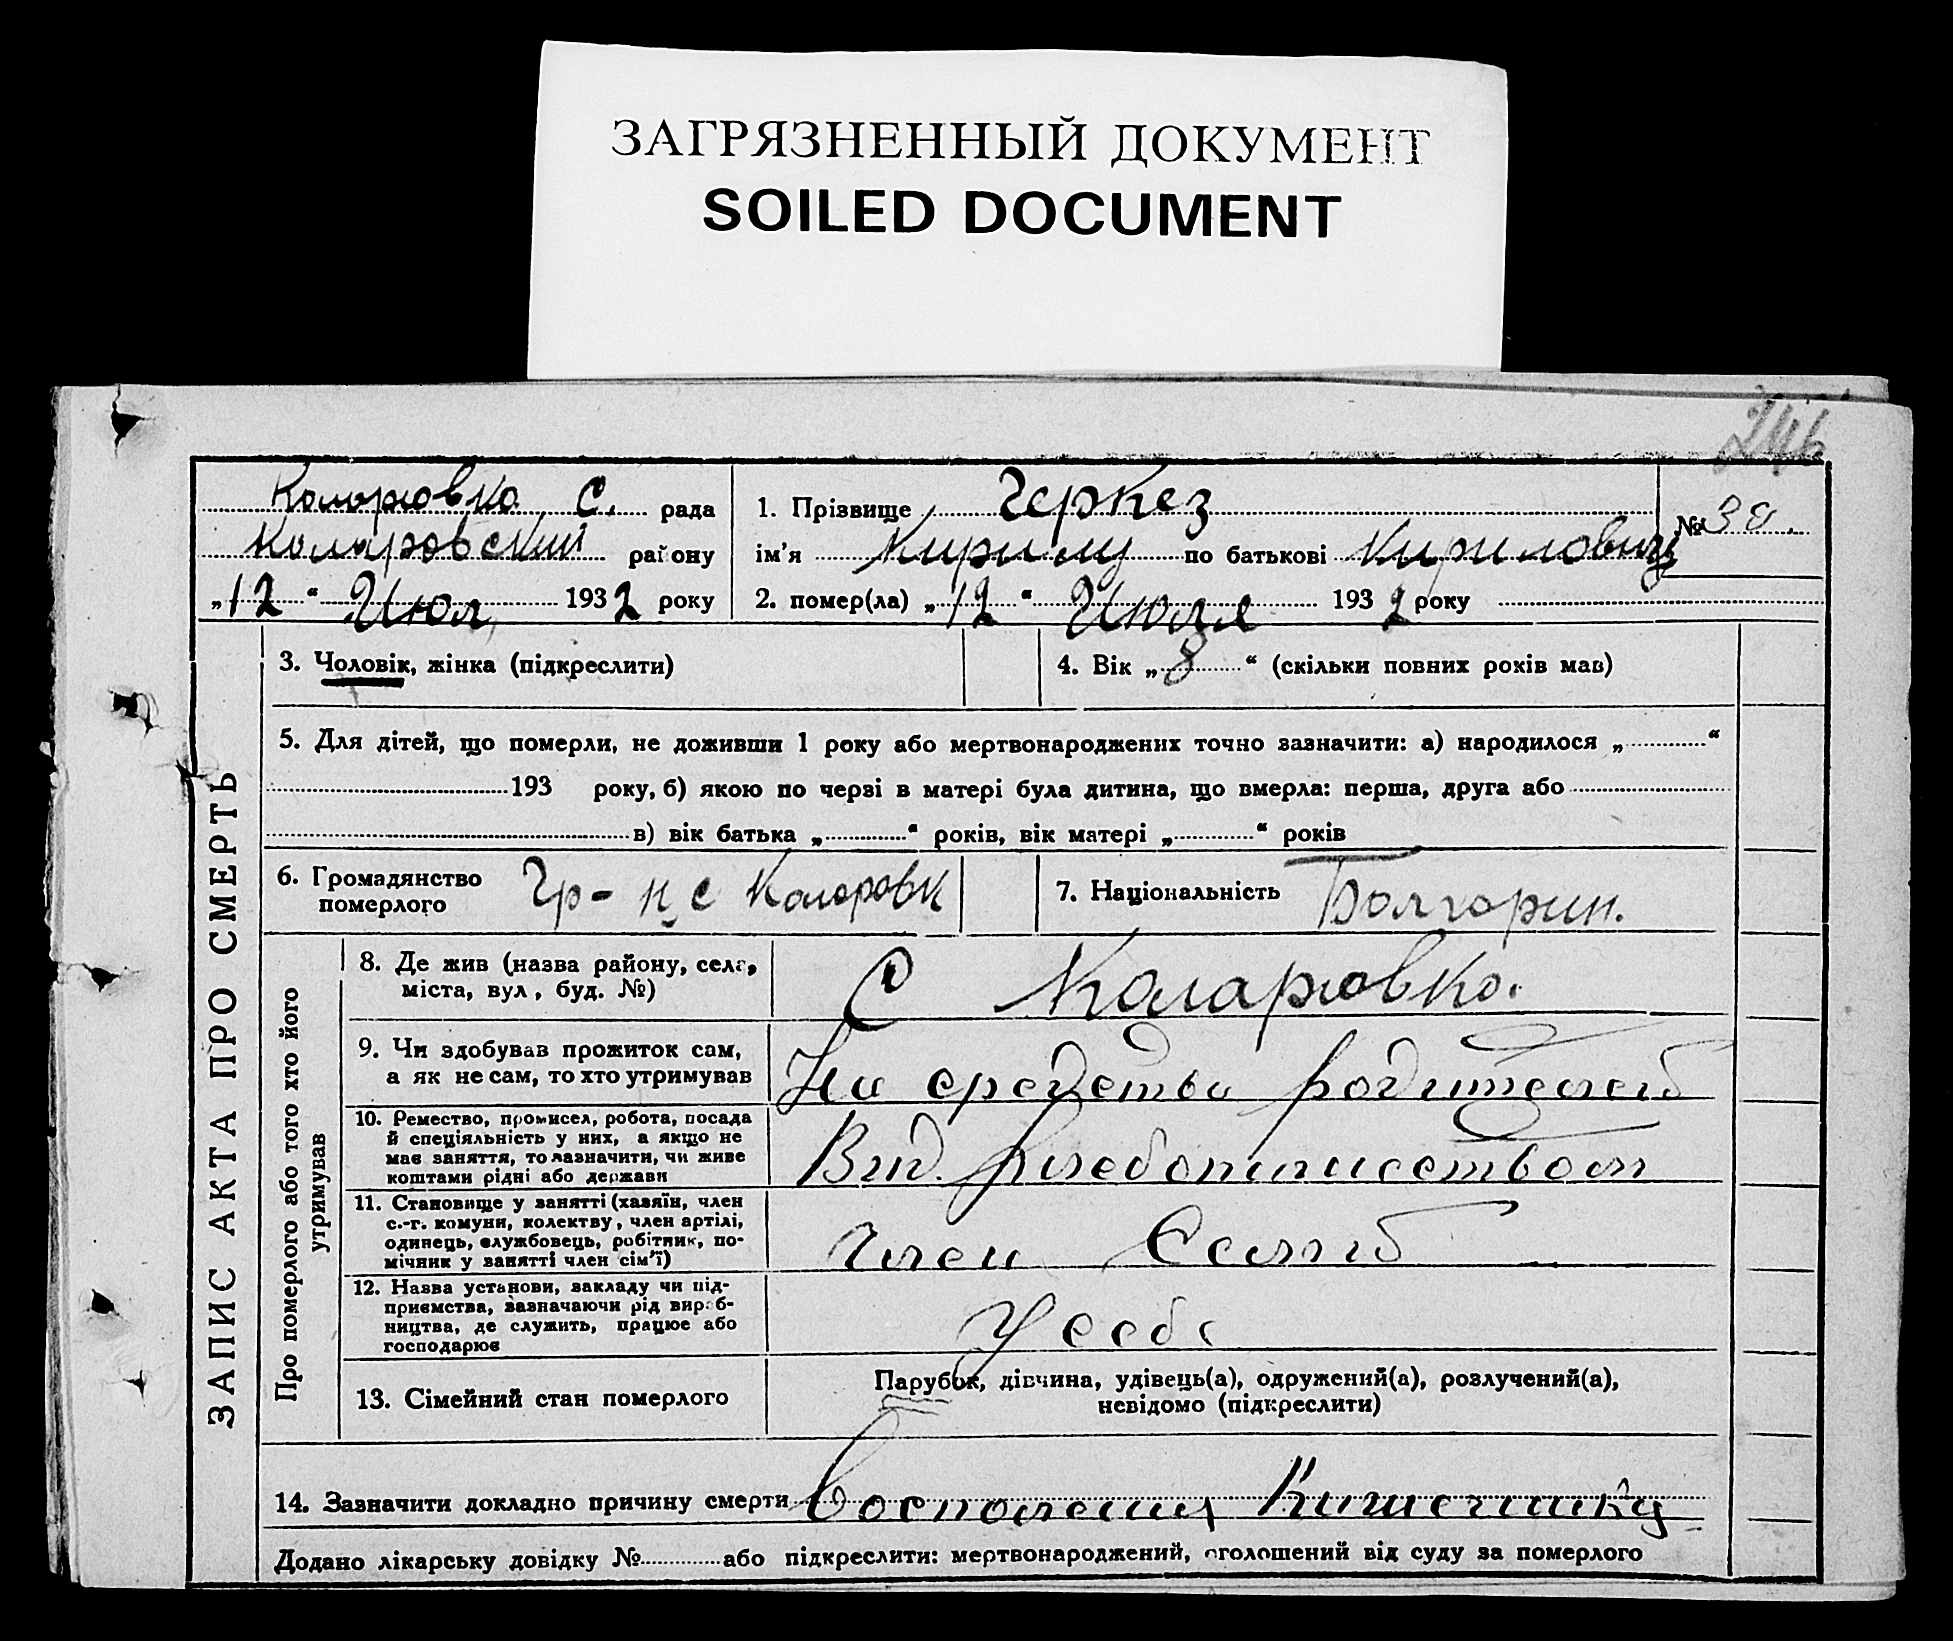 ЗАГРЯЗНЕННЫЙ ДОКУМЕНТ
SOILED DOCUMENT
246
Коларовка С. рада
Коларовский району
„12“ Июл 1932 року
1. Прізвище Черкез
№ 30.
ім’я Кирилу по батькові Кирилович
2. помер(ла) „12“ Июля 1932 року
ЗАПИС АКТА ПРО СМЕРТЬ
3. Чоловік, жінка (підкреслити)
4. Вік „8“ (скільки повних років мав)
5. Для дітей, що померли, не доживши 1 року або мертвонароджених точно зазначити: а) народилося „ “
193 року, б) якою по черзі в матері була дитина, що вмерла: перша, друга або
в) вік батька „ “ років, вік матері „ “ років
6. Громадянство
померлого
Гр-н с Коларовк
7. Національність Болгорин.
Про померлого або того хто його
утримував
8. Де жив (назва району, села,
міста, вул, буд. №)
С Коларовко.
9. Чи здобував прожиток сам,
а як не сам, то хто утримував
На средства родителей
10. Ремество, промисел, робота, посада
й спеціяльність у них, а якщо не
має заняття, то зазначити, чи живе
коштами рідні або держави
хлебопашеством
11. Становище у занятті (хазяїн, член
с.-г. комуни, колектву, член артілі,
одинець, службовець, робітник, по-
мічник у занятті член сім’ї)
член
12. Назва установи, закладу чи під-
приємства, зазначаючи рід вироб-
ництва, де служить, працює або
господарює
У себе
13. Сімейний стан померлого
Парубок, дівчина, удівець(а), одружений(а), розлучений(а),
невідомо (підкреслити)
14. Зазначити докладно причину смерти Воспалении Кишечнику
Додано лікарську довідку № або підкреслити: мертвонароджений, оголошений від суду за померлого